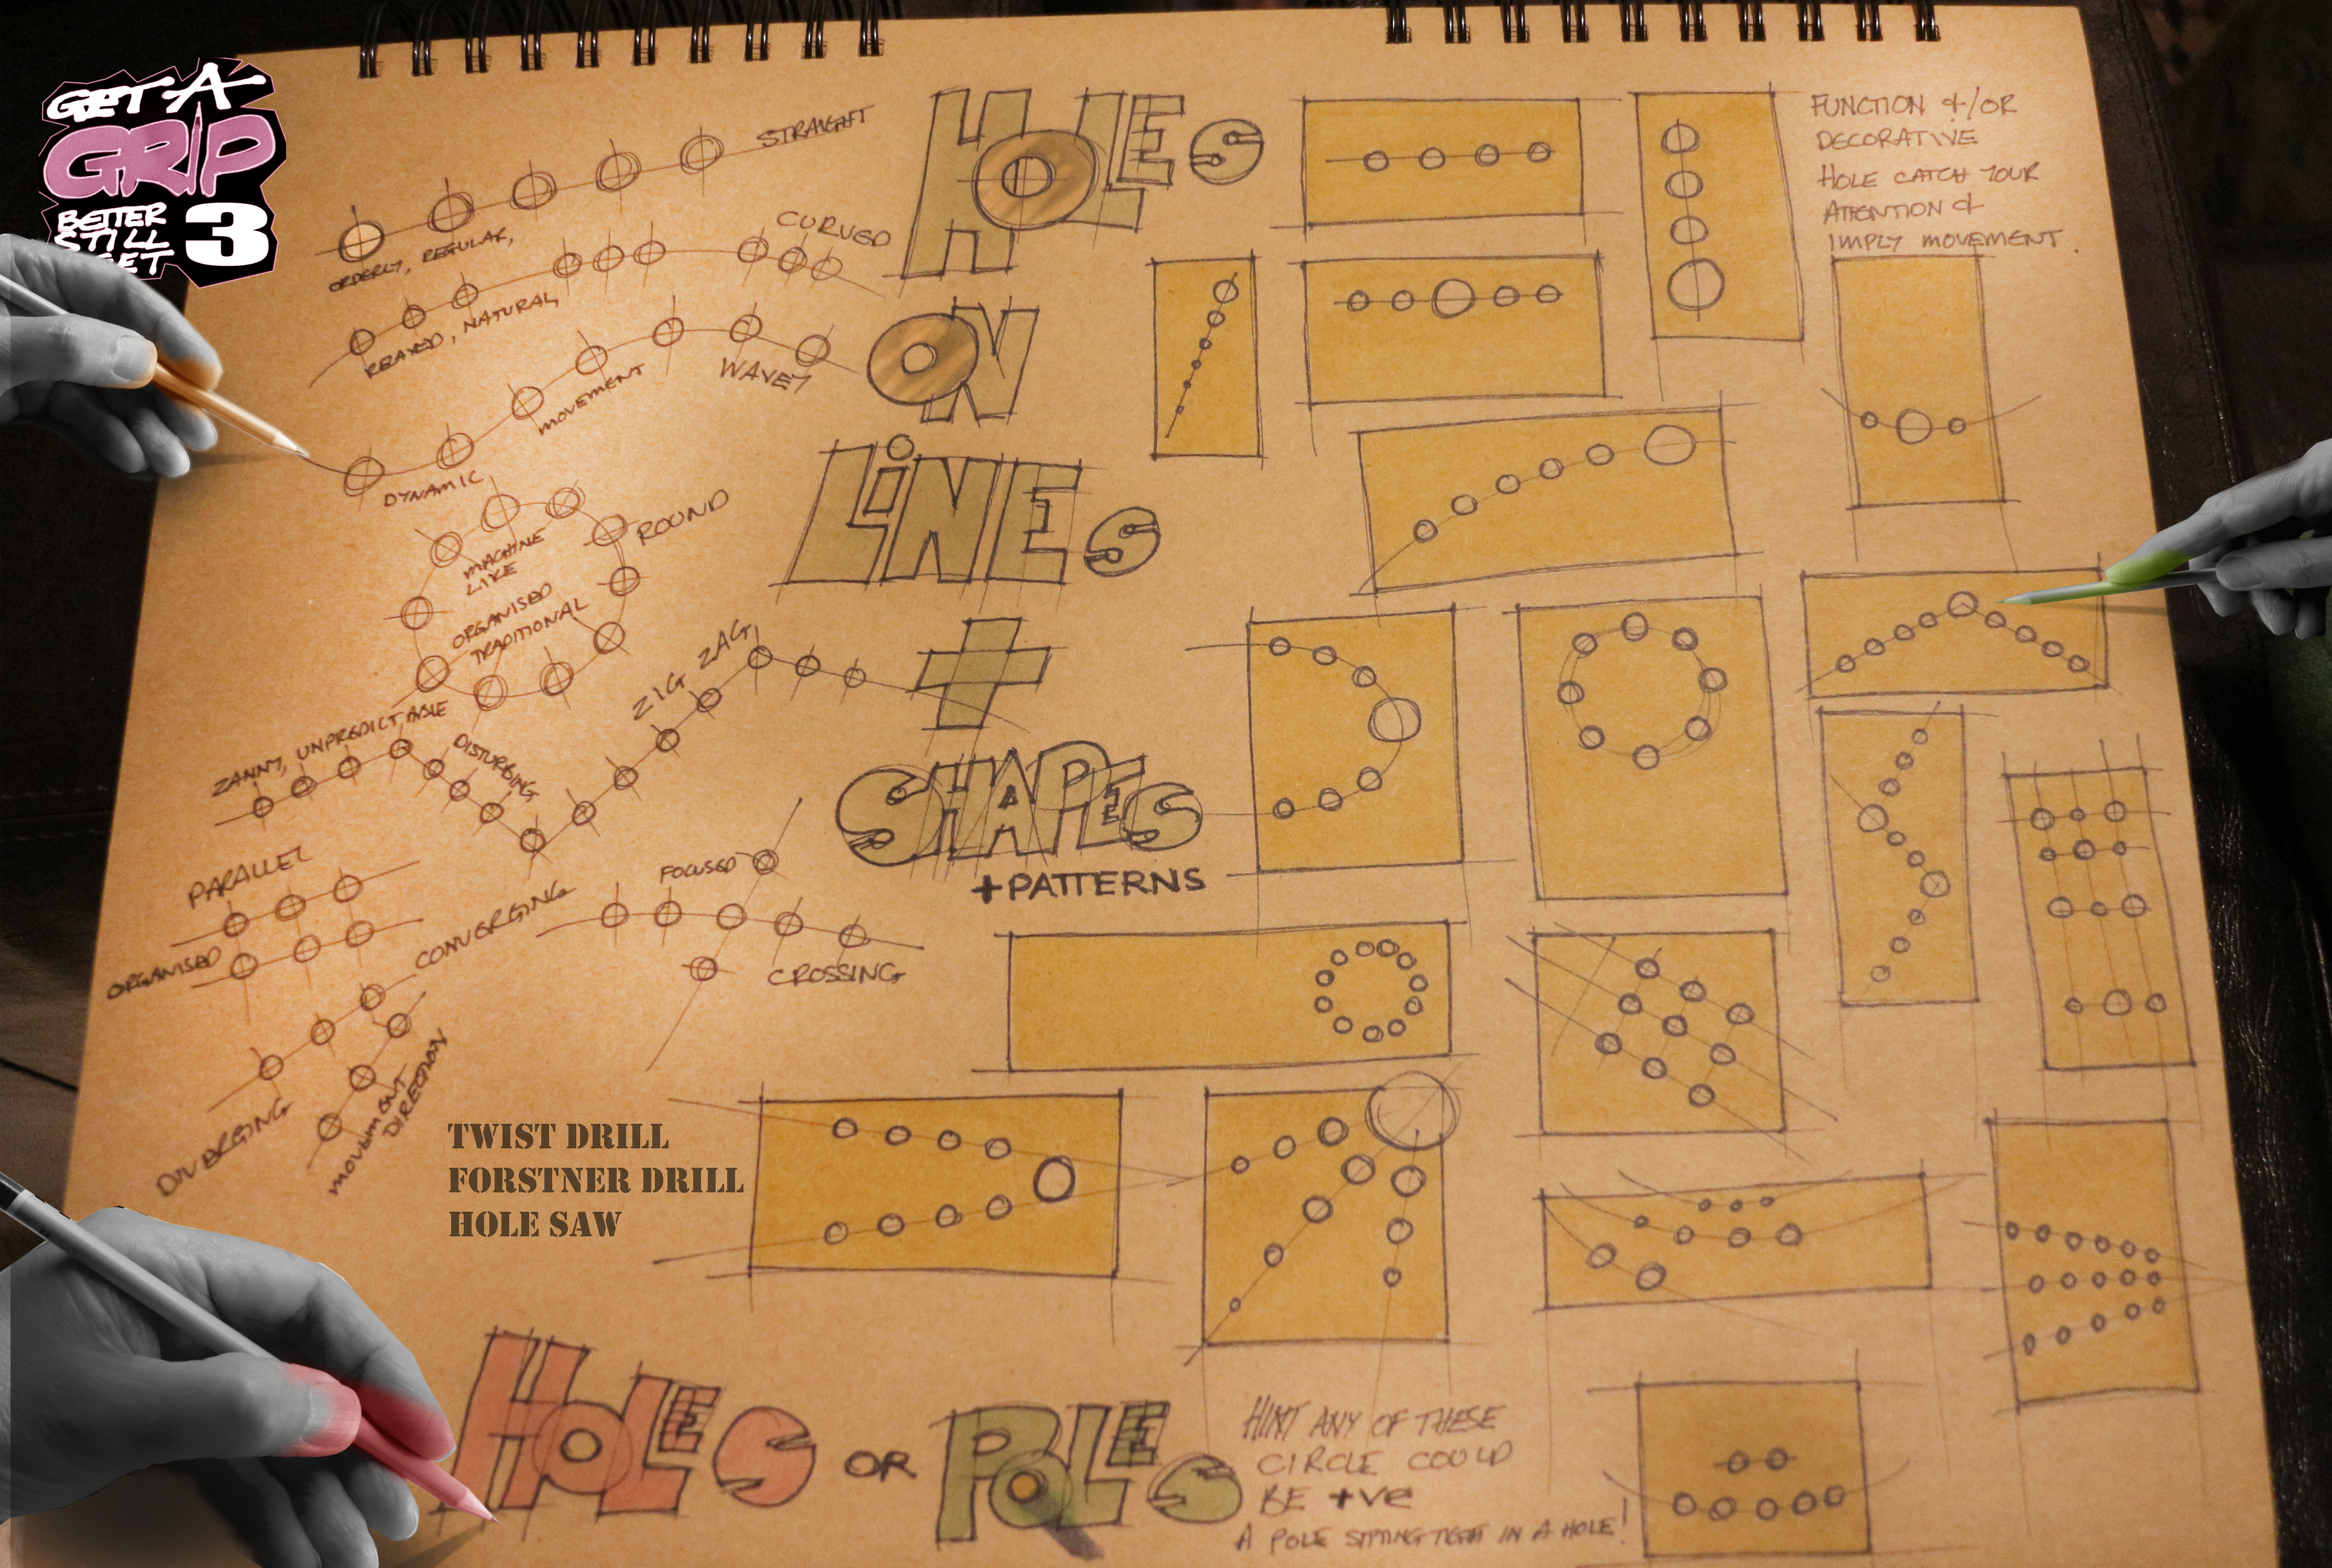 GET-A-
GRIP
BETTER
STILL
GET
3
STRAIGHT
ORDERLY, REGULAR,
CURVED
RELAXED, NATURAL,
WAVEY
MOVEMENT
DYNAMIC
ROUND
MACHINE
LIKE
ORGANISED
TRADITIONAL
ZIG ZAG
ZANNY, UNPREDICTABLE
DISTURBING
PARALLEL
ORGANISED
CONVERGING
DIVERGING
MOVEMENT
DIRECTION
FOCUSED
CROSSING
HOLES
ON
LINES
+
SHAPES
+PATTERNS
FUNCTION &/OR
DECORATIVE
HOLE CATCH YOUR
ATTENTION &
IMPLY MOVEMENT.
TWIST DRILL
FORSTNER DRILL
HOLE SAW
HOLES OR POLES
HINT ANY OF THESE
CIRCLE COULD
BE +VE
A POLE SITTING TIGHT IN A HOLE!